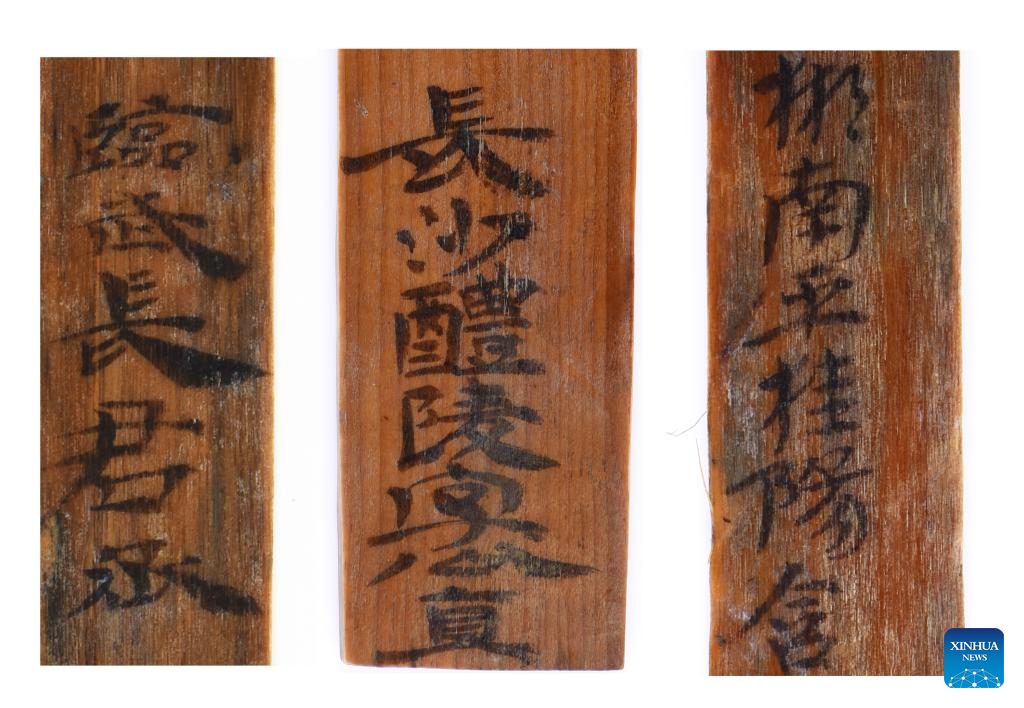 臨武長君丞
長沙醴陵直
南平桂陽含
XINHUA
NEWS